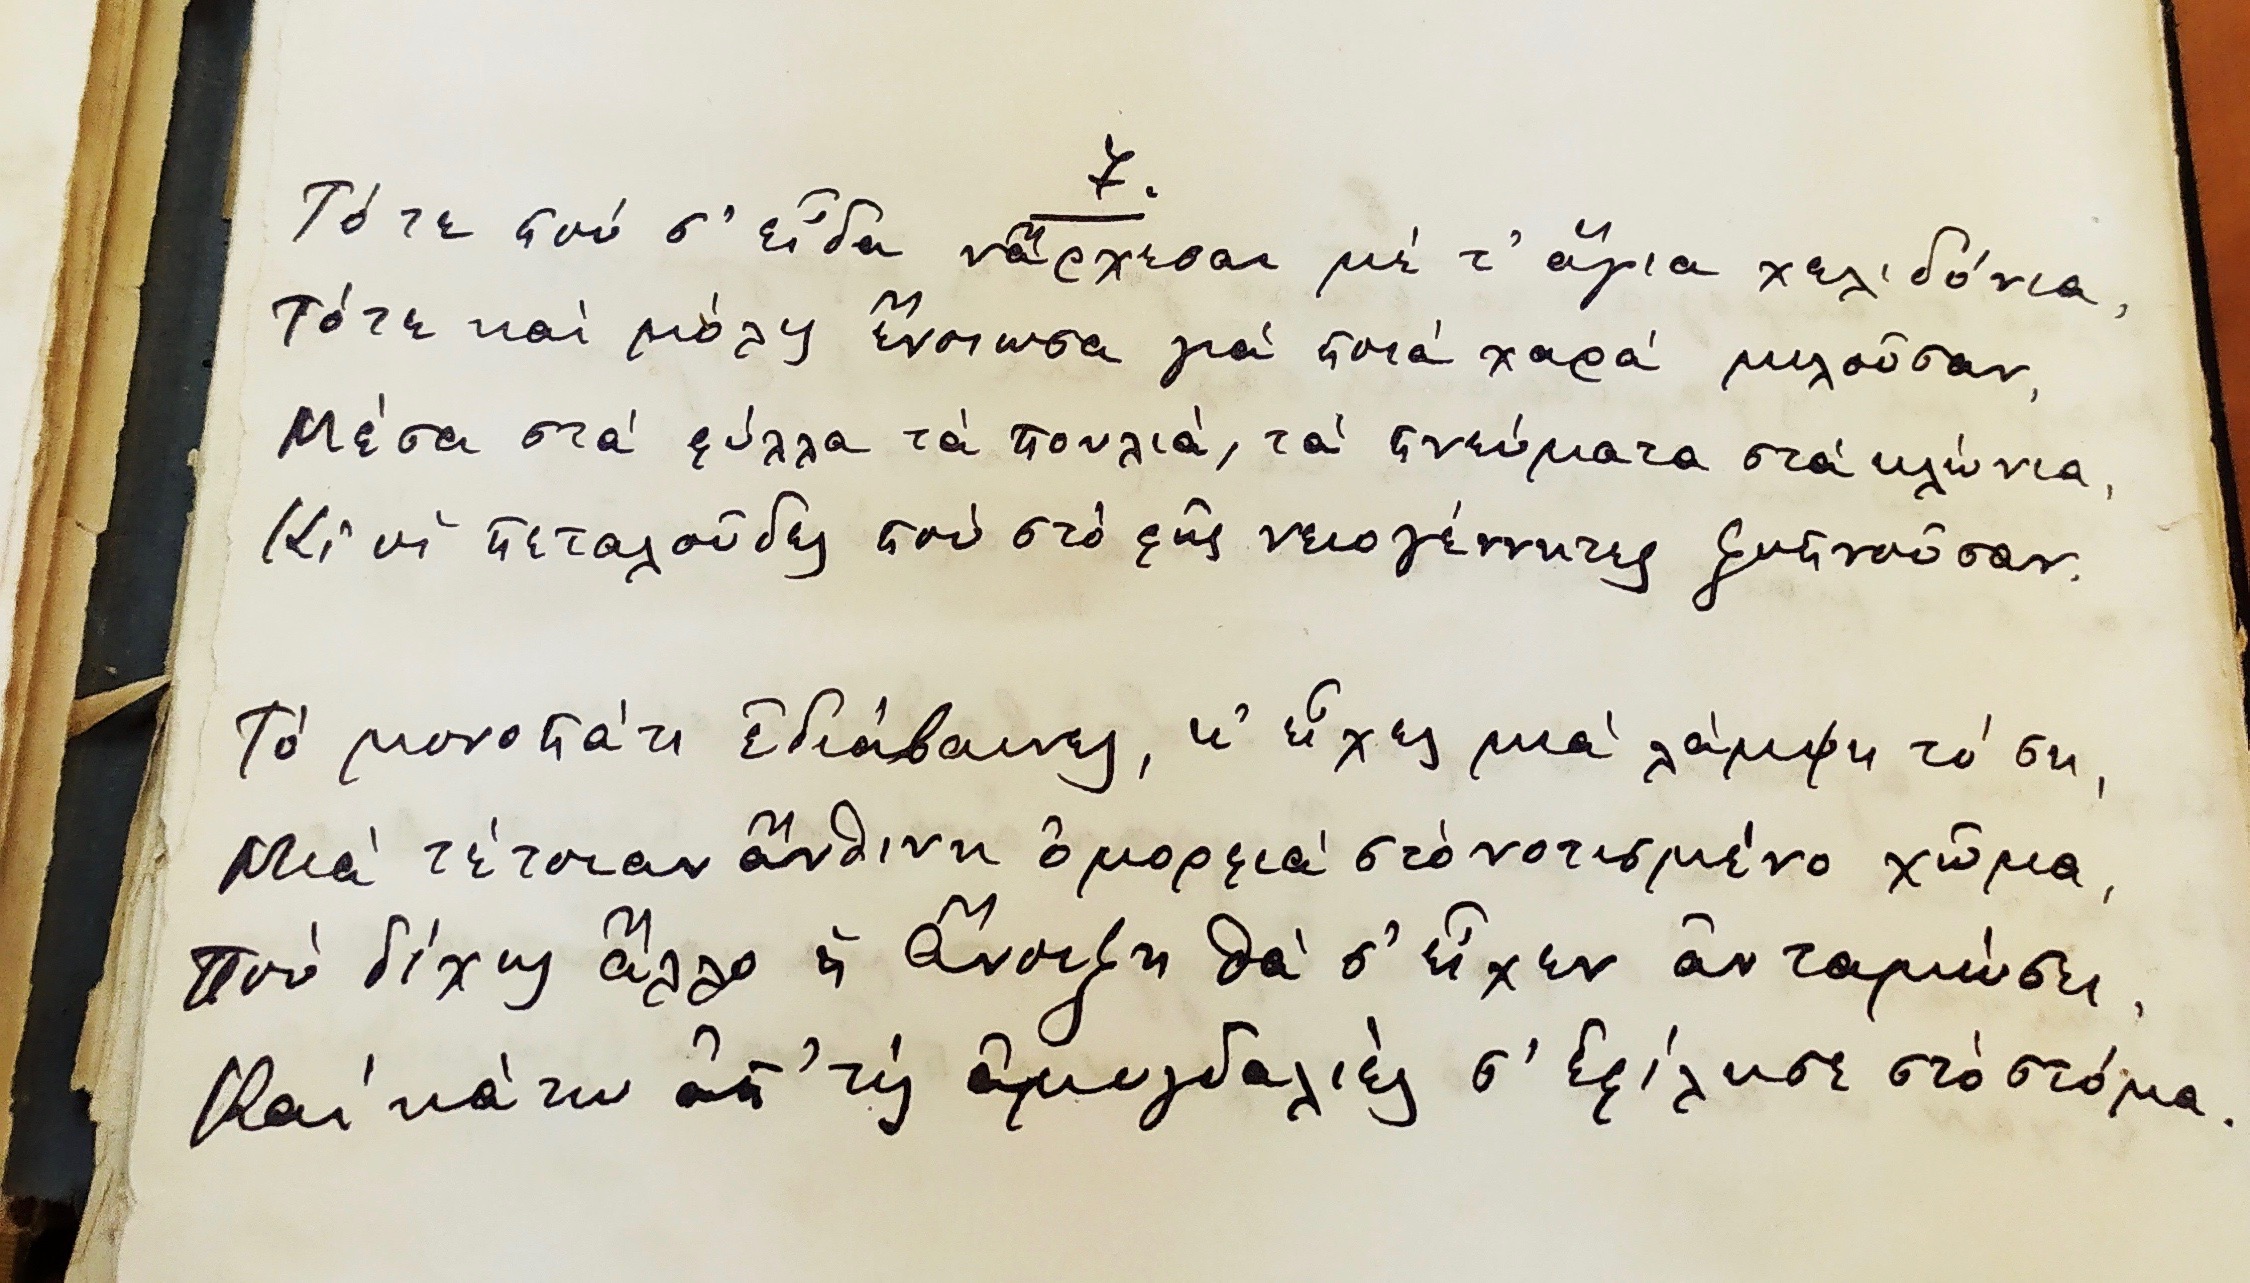 7.
Τότε πού σ' εἶδα νἄρχεσαι μέ τ' ἅγια χελιδόνια,
Τότε καί μόλις ἔνοιωσα γιά ποιά χαρά μιλοῦσαν,
Μέσα στά φύλλα τά πουλιά, τά πνεύματα στά κλώνια,
Κι οἱ πεταλοῦδες πού στό φῶς νειογέννητες ξυπνοῦσαν.
Τό μονοπάτι ἐδιάβαινες, κ' εἶχες μιά λάμψη τόση,
Μιά τέτοιαν ἄνθινη ὀμορφειά στό νοτισμένο χῶμα,
Πού δίχως ἄλλο ἡ Ἄνοιξη θά σ' εἶχεν ἀνταμώσει,
Καί κάτω ἀπ' τίς ἀμυγδαλιές σ' ἐφίλησε στό στόμα.